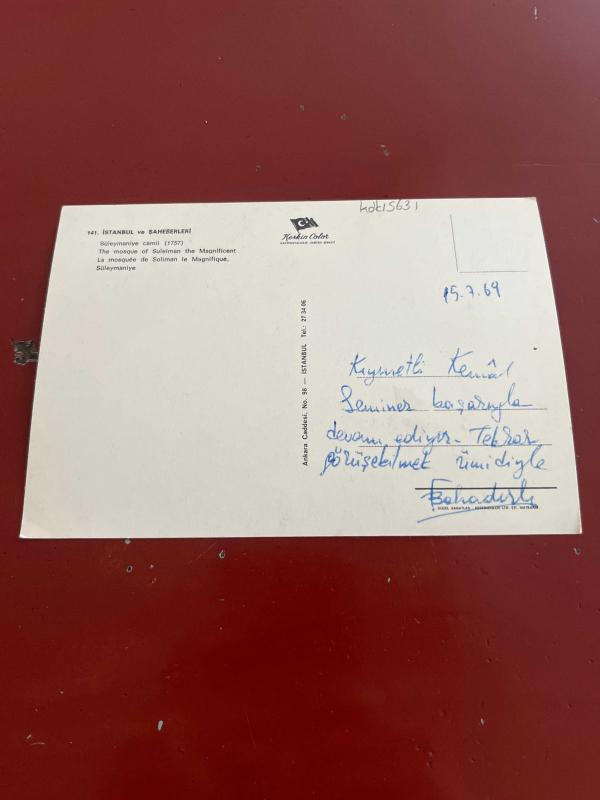 hdk15631
141. İSTANBUL ve ŞAHESERLERİ
Süleymaniye camii (1757)
The mosque of Suleiman the Magnificent
La mosquée de Soliman le Magnifique,
Süleymaniye
Keskin Color
Ankara Caddesi, No. 98 — İSTANBUL Tel.: 27 34 06
15.7.69
Kıymetli Kemâl
Seminer başarıyla
devam ediyor. Tekrar
görüşebilmek ümidiyle